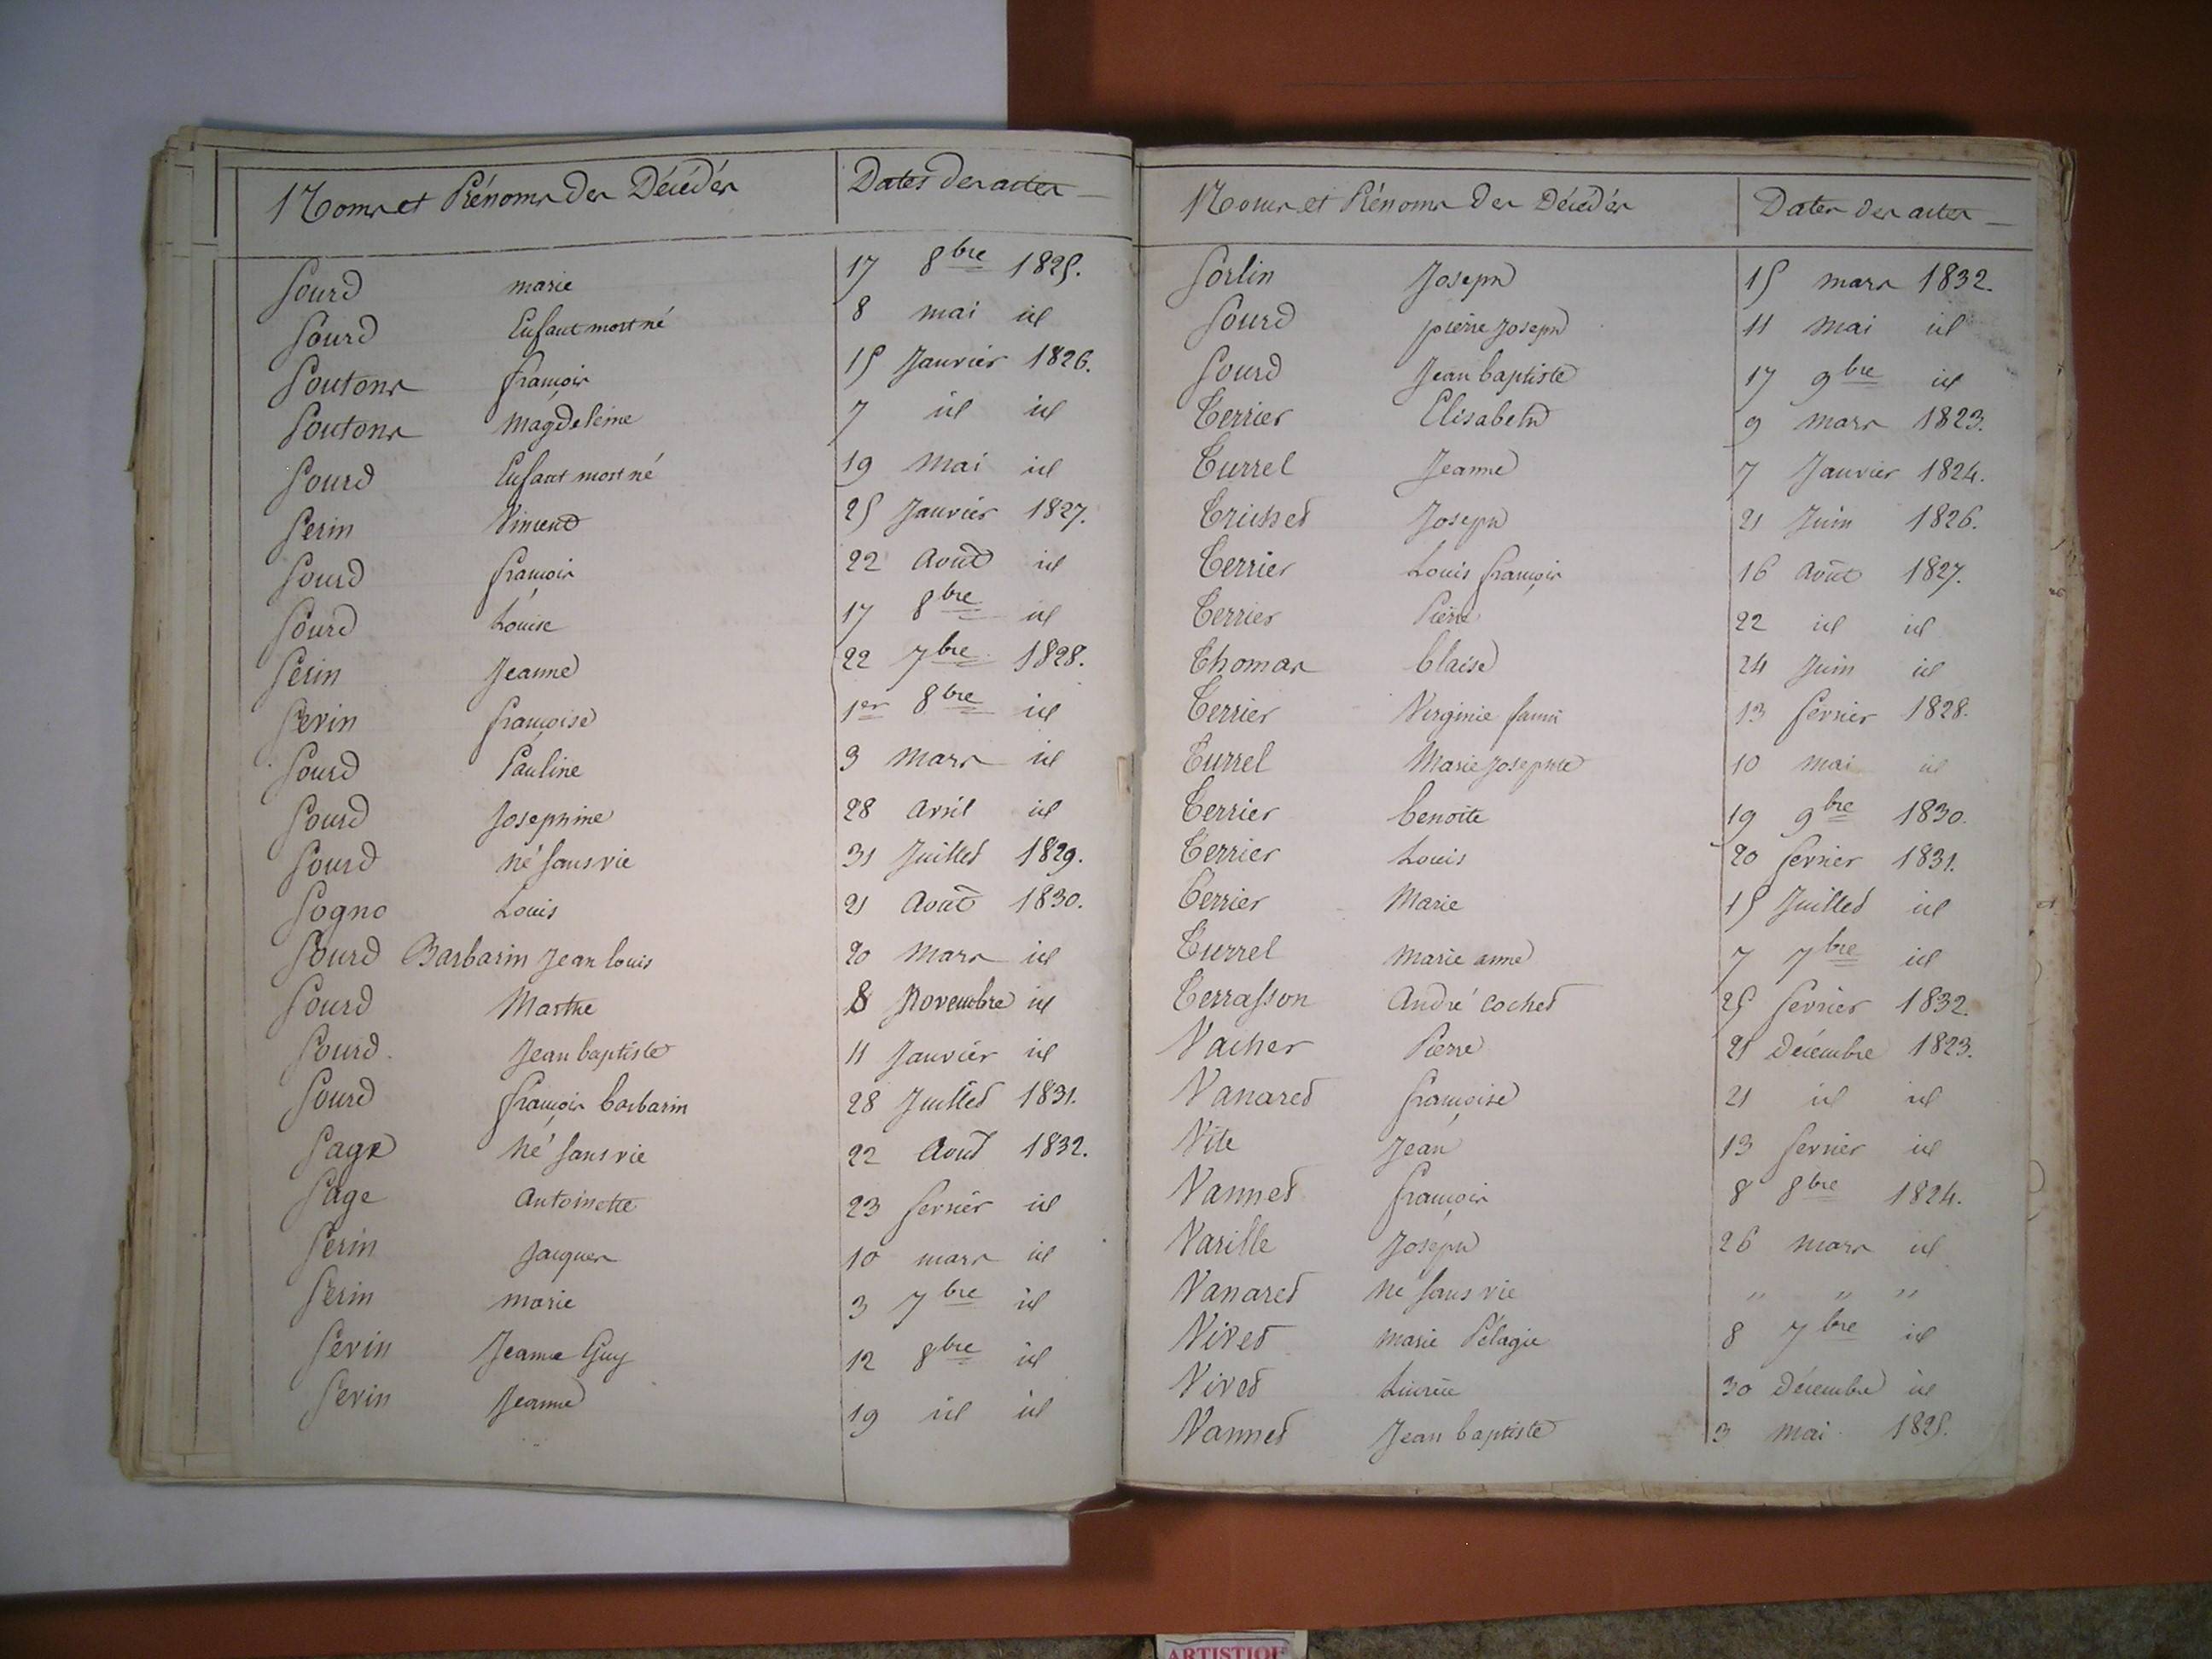 Noms et Prénoms des Décédés Dates des actes
Sourd marie 17 8bre 1825.
Sourd Enfant mort né 8 mai id
Soutons françois 15 Janvier 1826.
Soutons magdeleine 7 id id
Sourd Enfant mort né 19 Mai id
Serin Vincent 25 Janvier 1827.
Sourd françois 22 Août id
Sourd Louise 17 8bre id
Serin Jeanne 22 7bre 1828.
Sevin françoise 1er 8bre id
Sourd Pauline 3 Mars id
Sourd Josephine 28 avril id
Sourd né sans vie 31 Juillet 1829.
Sogno Louis 21 Août 1830.
Sourd Barbarin Jean louis 20 Mars id
Sourd Marthe 8 Novembre id
Sourd Jean baptiste 11 Janvier id
Sourd françois barbarin 28 Juillet 1831.
Sage né sans vie 22 Août 1832.
Sage Antoinette 23 fevrier id
Serin Jacques 10 mars id
Serin marie 3 7bre id
Sevin Jeanne Guy 12 8bre id
Sevin Jeanne 19 id id
Noms et Prénoms des Décédés Dates des actes
Sorlin Joseph 15 mars 1832.
Sourd pierre Joseph 11 mai id
Sourd Jean baptiste 17 9bre id
Terrier Elisabeth 9 mars 1823.
Turrel Jeanne 7 Janvier 1824.
Joseph 21 Juin 1826.
Terrier Louis françois 16 Août 1827.
Terrier Pierre 22 id id
Thomas blaise 24 Juin id
Terrier Virginie 13 fevrier 1828.
Turrel Marie Josephte 10 mai id
Terrier benoite 19 9bre 1830.
Terrier Louis 20 fevrier 1831.
Terrier Marie 15 Juillet id
Turrel Marie anne 7 7bre id
Terrasson André cochet 25 fevrier 1832.
Vacher Pierre 25 Décembre 1823.
Vanaret françoise 21 id id
Vite Jean 13 fevrier id
Vannet françois 8 8bre 1824.
Varille Joseph 26 mars id
Vanaret né sans vie " " "
Vivet marie Pélagie 8 7bre id
Vivet 30 Décembre id
Vannet Jean baptiste 3 mai 1825.
ARTISTIQUE